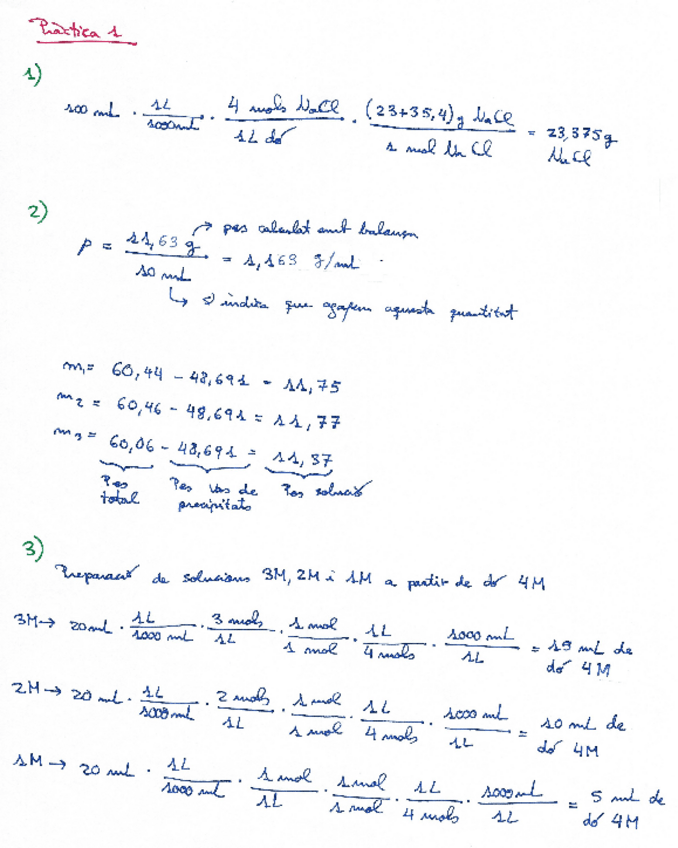 Pràctica 1
1)
100 mL · 1L / 1000mL · 4 mols NaCl / 1L dó · (23+35,4)g NaCl / 1 mol NaCl = 23,375g NaCl
2)
ρ = 11,63 g / 10 mL = 1,163 g/mL
→ pes calculat amb balança
↳ s'indica que agafem aquesta quantitat
m1= 60,44 - 48,691 = 11,75
m2 = 60,46 - 48,691 = 11,77
m3 = 60,06 - 48,691 = 11,37
Pes total Pes Vas de precipitats Pes solució
3)
Preparació de solucions 3M, 2M i 1M a partir de dó 4M
3M → 20mL · 1L / 1000 mL · 3 mols / 1L · 1 mol / 1 mol · 1L / 4 mols · 1000 mL / 1L = 15 mL de dó 4M
2M → 20 mL · 1L / 1000mL · 2 mols / 1L · 1 mol / 1 mol · 1L / 4 mols · 1000 mL / 1L = 10 mL de dó 4M
1M → 20 mL · 1L / 1000 mL · 1 mol / 1L · 1 mol / 1 mol · 1L / 4 mols · 1000mL / 1L = 5 mL de dó 4M